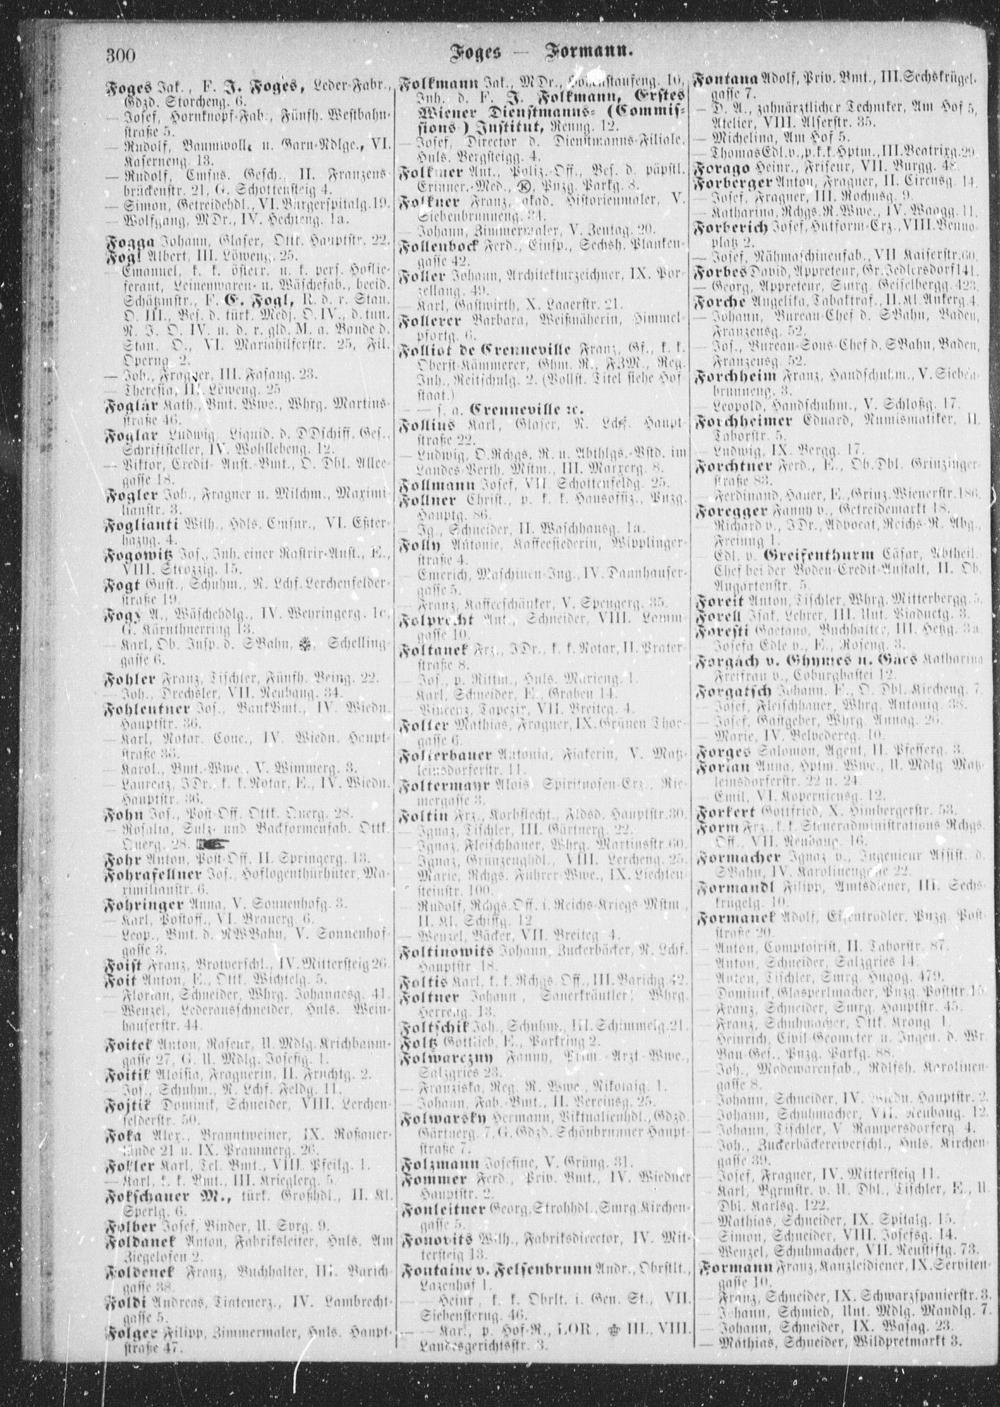 300
Foges — Formann.
Foges Jak., F. J. Foges, Leder-Fabr.,
Gdzd. Storcheng. 6.
— Josef, Hornknopf-Fab., Fünfh. Westbahn-
straße 5.
— Rudolf, Baumwoll- u. Garn-Ndlge., VI.
Kaserneng. 13.
— Rudolf, Emsus. Gesch., II. Franzens-
brückenstr. 21, G. Schottensteig 4.
— Simon, Getreidehdl., VI. Bürgerspitalg. 19.
— Wolfgang, MDr., IV. Hechteng. 1a.
Fogga Johann, Glaser, Ottk. Hauptstr. 22.
Fogl Albert, III. Löweng. 25.
— Emanuel, k. k. österr. u. k. pers. Hoflie-
ferant, Leinenwaren- u. Wäschefab., beeid.
Schätzmstr., F. E. Fogl, R. d. r. Stan.
O. III., Bes. d. türk. Medj. O. IV., d. tun.
N. J. O. IV. u. d. r. gld. M. a. Bande d.
Stan. O., VI. Mariahilferstr. 25, Fil.
Operng. 2.
— Joh., Fragner, III. Fasang. 23.
— Theresia, III. Löweng. 25
Foglár Kath., Bmt. Wwe., Whrg. Martins-
straße 46.
Foglar Ludwig, Liquid. d. DDschiff. Ges.,
Schriftsteller, IV. Wohllebeng. 12.
— Viktor, Credit-Anst.-Bmt., O. Dbl. Allee-
gasse 18.
Fogler Joh., Fragner u. Milchm., Maximi-
lianstr. 3.
Foglianti Wilh., Hdls. Cmsnr., VI. Eßter-
hazyg. 4.
Fogowitz Jos., Inh. einer Rastrir-Anst., E.,
VIII. Strozzig. 15.
Fogt Gust., Schuhm., N. Lchf. Lerchenfelder-
straße 19.
Fogy A., Wäschehdlg., IV. Weyringerg. 1c,
G. Kärnthnerring 13.
— Karl, Ob. Insp. d. SBahn, Schelling-
gasse 6.
Fohler Franz, Tischler, Fünfh. Being. 22.
— Joh., Drechsler, VII. Neubaug. 34.
Fohleutner Jos., BankBmt., IV. Wiedn.
Hauptstr. 36.
— Karl, Notar. Conc., IV. Wiedn. Haupt-
straße 36.
— Karol., Bmt.-Wwe., V. Wimmerg. 3.
— Laurenz, JDr., k. k. Notar, E., IV. Wiedn.
Hauptstr. 36.
Fohn Jos., Post-Off. Ottk. Querg. 28.
— Rosalia, Sulz- und Backformenfab. Ottk.
Querg. 28.
Fohr Anton, Post-Off., II. Springerg. 13.
Fohrafellner Jos., Hoflogenthürhüter, Ma-
ximilianstr. 6.
Fohringer Anna, V. Sonnenhofg. 3.
— Karl, Postoff., VI. Brauerg. 6.
— Leop., Bmt. d. NWBahn, V. Sonnenhof-
gasse 3.
Foist Franz, Brotverschl., IV. Mittersteig 26.
Foit Anton, E., Ottk. Wichtelg. 5.
— Florian, Schneider, Whrg. Johannesg. 41.
— Wenzel, Lederausschneider, Huls. Wein-
hauserstr. 44.
Foitek Anton, Raseur, U. Mdlg. Krichbaum-
gasse 27, G. U. Mdlg. Josefig. 1.
Foitik Aloisia, Fragnerin, II. Fruchtg. 2.
— Jos., Schuhm., N. Lchf. Feldg. 11.
Fojtik Dominik, Schneider, VIII. Lerchen-
felderstr. 50.
Foka Alex., Branntweiner, IX. Roßauer-
lände 21 u. IX. Prammerg. 26.
Fokler Karl, Tel. Bmt., VIII. Pfeilg. 1.
— Karl, k. k. Bmt., III. Krieglerg. 5.
Fokschaner M., türk. Großhdl., II. Kl.
Sperlg. 6.
Folber Josef, Binder, U. Sprg. 9.
Foldanek Anton, Fabriksleiter, Huls. Am
Ziegelofen 2.
Foldenek Franz, Buchhalter, III. Barich-
gasse 38.
Foldi Andreas, Tintenerz., IV. Lambrecht-
gasse 5.
Folger Filipp, Zimmermaler, Huls. Haupt-
straße 47.
Folkmann Jak., MDr., Hohenstaufeng. 10,
Inh. d. F. J. Folkmann, Erstes
Wiener Dienstmanns- (Commis-
sions-) Institut, Renng. 12.
— Josef, Director d. Dienstmanns-Filiale,
Huls. Bergsteigg. 4.
Folkner Ant., Poliz.-Off., Bes. d. päpstl.
Erinner.-Med., Pnzg. Parkg. 8.
Folkner Franz, akad. Historienmaler, V.
Siebenbrunneng. 31.
— Johann, Zimmermaler, V. Zentag. 20.
Follenbock Ferd., Einsp., Sechsh. Planken-
gasse 42.
Foller Johann, Architekturzeichner, IX. Por-
zellang. 49.
— Karl, Gastwirth, X. Laaerstr. 21.
Follerer Barbara, Weißnäherin, Himmel-
pfortg. 6.
Folliot de Crenneville Franz, Gf., k. k.
Oberst-Kämmerer, Ghm. R., FZM., Reg.
Inh., Reitschulg. 2. (Vollst. Titel siehe Hof-
staat.)
— s. a. Crenneville ꝛc.
Follius Karl, Glaser, N. Lchf. Haupt-
straße 22.
— Ludwig, O.Rchgs. R. u. Abthlgs.-Vstd. im
Landes-Verth. Mstm., III. Marxerg. 8.
Follmann Josef, VII. Schottenfeldg. 25.
Follner Christ., p. k. k. Hausoffiz., Pnzg.
Hauptg. 86.
— Jg., Schneider, II. Waschhausg. 1a.
Folly Antonie, Kaffeesiederin, Wipplinger-
straße 4.
— Emerich, Maschinen-Ing., IV. Dannhauser-
gasse 5.
— Franz, Kaffeeschänker, V. Spengerg. 35.
Folprecht Ant., Schneider, VIII. Lamm-
gasse 10.
Foltanek Frz., JDr., k. k. Notar, II. Prater-
straße 8.
— Jos., p. Rittm., Huls. Marieng. 1.
— Karl, Schneider, E., Graben 14.
— Vincenz, Tapezir, VII. Breiteg. 4.
Foller Mathias, Fragner, IX. Grünen Thor-
gasse 6.
Folterbauer Antonia, Fiakerin, V. Matz-
leinsdorferstr. 11.
Foltermayr Alois, Spirituosen-Erz., Rie-
mergasse 3.
Foltin Frz., Korbflecht., Fldsd. Hauptstr. 30.
— Ignaz, Tischler, III. Gärtnerg. 22.
— Ignaz, Fleischhauer, Whrg. Martinsstr. 60.
— Ignaz, Grünzeughdl., VIII. Lercheng. 25.
— Marie, Rchgs. Führer-Wwe., IX. Liechten-
steinstr. 100.
— Rudolf, Rchgs.Off. i. Reichs-Kriegs-Mstm.,
II. Kl. Schiffg. 12.
— Wenzel, Bäcker, VII. Breiteg. 4.
Foltinowits Johann, Zuckerbäcker, N. Lchf.
Hauptstr. 18.
Foltis Karl, k. k. Rchgs. Off., III. Barichg. 42.
Foltner Johann, Sauerkräutler, Whrg.
Herreng. 13.
Foltschik Joh., Schuhm., III. Schimmelg. 21.
Foltz Gottlieb, E., Parkring 2.
Folwarczny Fanny, Prim.-Arzt-Wwe.,
Salzgries 23.
— Franziska, Reg. R. Wwe., Nikolaig. 1.
— Johann, Fab.-Bmt., II. Vereinsg. 25.
Folwarsky Hermann, Viktualienhdl., Gdzd.
Gärtnerg. 7, G. Gdzd. Schönbrunner Haupt-
straße 7.
Folzmann Josefine, V. Grüng. 31.
Fommer Ferd., Priv. Bmt., IV. Wiedner
Hauptstr. 2.
Fonleitner Georg, Strohhdl., Smrg. Kirchen-
gasse 5.
Fonovits Wilh., Fabriksdirector, IV. Mit-
tersteig 13.
Fontaine v. Felsenbrunn Andr., Obrstlt.,
Lazenhof 1.
— — Heinr., k. k. Obrlt. i. Gen. St., VII.
Siebensterng. 46.
— — Karl, p. Hof-R., LOR., III., VIII.
Landesgerichtsstr. 3.
Fontana Adolf, Priv. Bmt., III. Sechskrügel-
gasse 7.
— D. A., zahnärztlicher Techniker, Am Hof 5,
Atelier, VIII. Alserstr. 35.
— Michelina, Am Hof 5.
— Thomas Edl. v., p. k. k. Hptm., III. Beatrixg. 29.
Forago Heinr., Friseur, VII. Burgg. 48.
Forberger Anton, Fragner, II. Circusg. 14.
— Josef, Fragner, III. Rochusg. 9.
— Katharina, Rchgs. R. Wwe., IV. Waagg. 11.
Forberich Josef, Hutform-Erz., VIII. Benno-
platz 2.
— Josef, Nähmaschinenfab., VII Kaiserstr. 60.
Forbes David, Appreteur, Gr. Jedlersdorf 141.
— Georg, Appreteur, Smrg. Geiselbergg. 423.
Forche Angelika, Tabaktraf., II. Kl. Ankerg. 4.
— Johann, Bureau-Chef d. SBahn, Baden,
Franzensg. 52.
— Jos., Bureau-Sous-Chef d. SBahn, Baden,
Franzensg. 52.
Forchheim Franz, Handschul.m., V. Sieben-
brunneng. 3.
— Leopold, Handschuhm., V. Schloßg. 17.
Forchheimer Eduard, Numismatiker, II.
Taborstr. 5.
— Ludwig, IX. Bergg. 17.
Forchtner Ferd., E., Ob.Dbl. Grinzinger-
straße 83.
— Ferdinand, Hauer, E., Grinz. Wienerstr. 186.
Foregger Fanny v., Getreidemarkt 18.
— Richard v., JDr., Advocat, Reichs-R. Abg.,
Freiung 1.
— Edl. v. Greifenthurm Cäsar, Abtheil.
Chef bei der Boden-Credit-Anstalt, II. Ob.
Augartenstr. 5.
Foreit Anton, Tischler, Whrg. Mitterbergg. 5.
Forell Isak, Lehrer, III. Unt. Viaductg. 3.
Foresti Gaetano, Buchhalter, III. Hetzg. 3a.
— Josefa Edle v., E., Roseng. 3.
Forgách v. Ghymes u. Gács Katharina
Freifrau v., Coburgbastei 12.
Forgatsch Johann, E., O. Dbl. Kircheng. 7.
— Josef, Fleischhauer, Whrg. Antonig. 38.
— Josef, Gastgeber, Whrg. Annag. 26.
— Marie, IV. Belvedereg. 10.
Forges Salomon, Agent, II. Pfefferg. 3.
Forian Anna, Hptm. Wwe., U. Mdlg. Matz-
leinsdorferstr. 22 u. 24.
— Emil, VI. Kopernicusg. 12.
Forkert Gottfried, X. Himbergerstr. 53.
Form Frz., k. k. Steueradministrations Rchgs.
Off., VII. Neubaug. 16.
Formacher Ignaz v., Ingenieur Assist. d.
SBahn, IV. Karolinengasse 22.
Formandl Filipp, Amtsdiener, III. Sechs-
krügelg. 10.
Formanek Adolf, Eisentrödler, Pnzg. Post-
straße 20.
— Anton, Comptoirist, II. Taborstr. 87.
— Anton, Schneider, Salzgries 14.
— Anton, Tischler, Smrg. Hugog. 479.
— Dominik, Glasperlmacher, Pnzg. Poststr. 15.
— Franz, Schneider, Smrg. Hauptstr. 45.
— Franz, Schuhmacher, Ottk. Krong. 1.
— Heinrich, Civil-Geometer u. Ingen. d. Wr.
Bau-Ges., Pnzg. Parkg. 88.
— Joh., Modewarenfab., Rdlfsh. Karolinen-
gasse 8.
— Johann, Schneider, IV. Wiedn. Hauptstr. 2.
— Johann, Schuhmacher, VII. Neubaug. 12.
— Johann, Tischler, V. Rampersdorferg. 4.
— Joh., Zuckerbäckereiverschl., Huls. Kirchen-
gasse 39.
— Josef, Fragner, IV. Mittersteig 11.
— Karl, Bgrmstr. v. U. Dbl., Tischler, E., U.
Dbl. Karlsg. 122.
— Mathias, Schneider, IX. Spitalg. 15.
— Simon, Schneider, VIII. Josefsg. 14.
— Wenzel, Schuhmacher, VII. Neustiftg. 73.
Formann Franz, Kanzleidiener, IX. Serviten-
gasse 10.
— Franz, Schneider, IX. Schwarzspanierstr. 3.
— Johann, Schmied, Unt. Mdlg. Mandlg. 7.
— Johann, Schneider, IX. Wasag. 23.
— Mathias, Schneider, Wildpretmarkt 3.